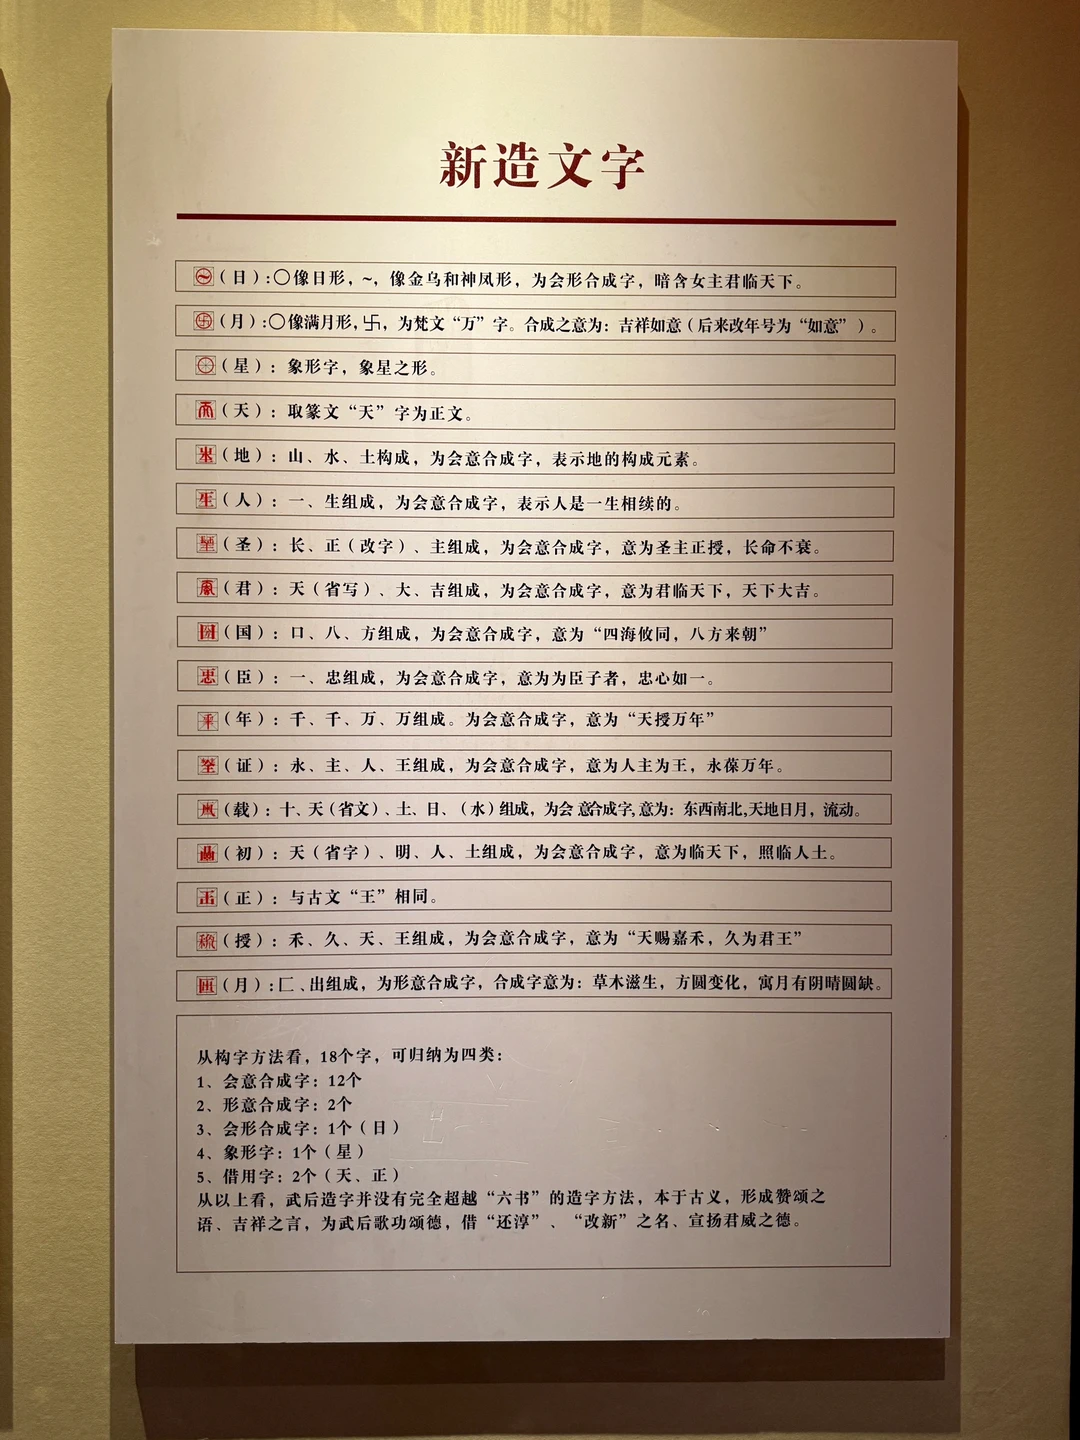 新造文字
（日）：〇像日形，~，像金乌和神凤形，为会形合成字，暗含女主君临天下。
（月）：〇像满月形，卐，为梵文“万”字。合成之意为：吉祥如意（后来改年号为“如意”）。
（星）：象形字，象星之形。
（天）：取篆文“天”字为正文。
（地）：山、水、土构成，为会意合成字，表示地的构成元素。
（人）：一、生组成，为会意合成字，表示人是一生相续的。
（圣）：长、正（改字）、主组成，为会意合成字，意为圣主正授，长命不衰。
（君）：天（省写）、大、吉组成，为会意合成字，意为君临天下，天下大吉。
（国）：口、八、方组成，为会意合成字，意为“四海攸同，八方来朝”
（臣）：一、忠组成，为会意合成字，意为为臣子者，忠心如一。
（年）：千、千、万、万组成。为会意合成字，意为“天授万年”
（证）：永、主、人、王组成，为会意合成字，意为人主为王，永葆万年。
（载）：十、天（省文）、土、日、（水）组成，为会意合成字，意为：东西南北，天地日月，流动。
（初）：天（省字）、明、人、土组成，为会意合成字，意为临天下，照临人土。
（正）：与古文“王”相同。
（授）：禾、久、天、王组成，为会意合成字，意为“天赐嘉禾，久为君王”
（月）：匚、出组成，为形意合成字，合成字意为：草木滋生，方圆变化，寓月有阴晴圆缺。
从构字方法看，18个字，可归纳为四类：
1、会意合成字：12个
2、形意合成字：2个
3、会形合成字：1个（日）
4、象形字：1个（星）
5、借用字：2个（天、正）
从以上看，武后造字并没有完全超越“六书”的造字方法，本于古义，形成赞颂之
语、吉祥之言，为武后歌功颂德，借“还淳”、“改新”之名、宣扬君威之德。